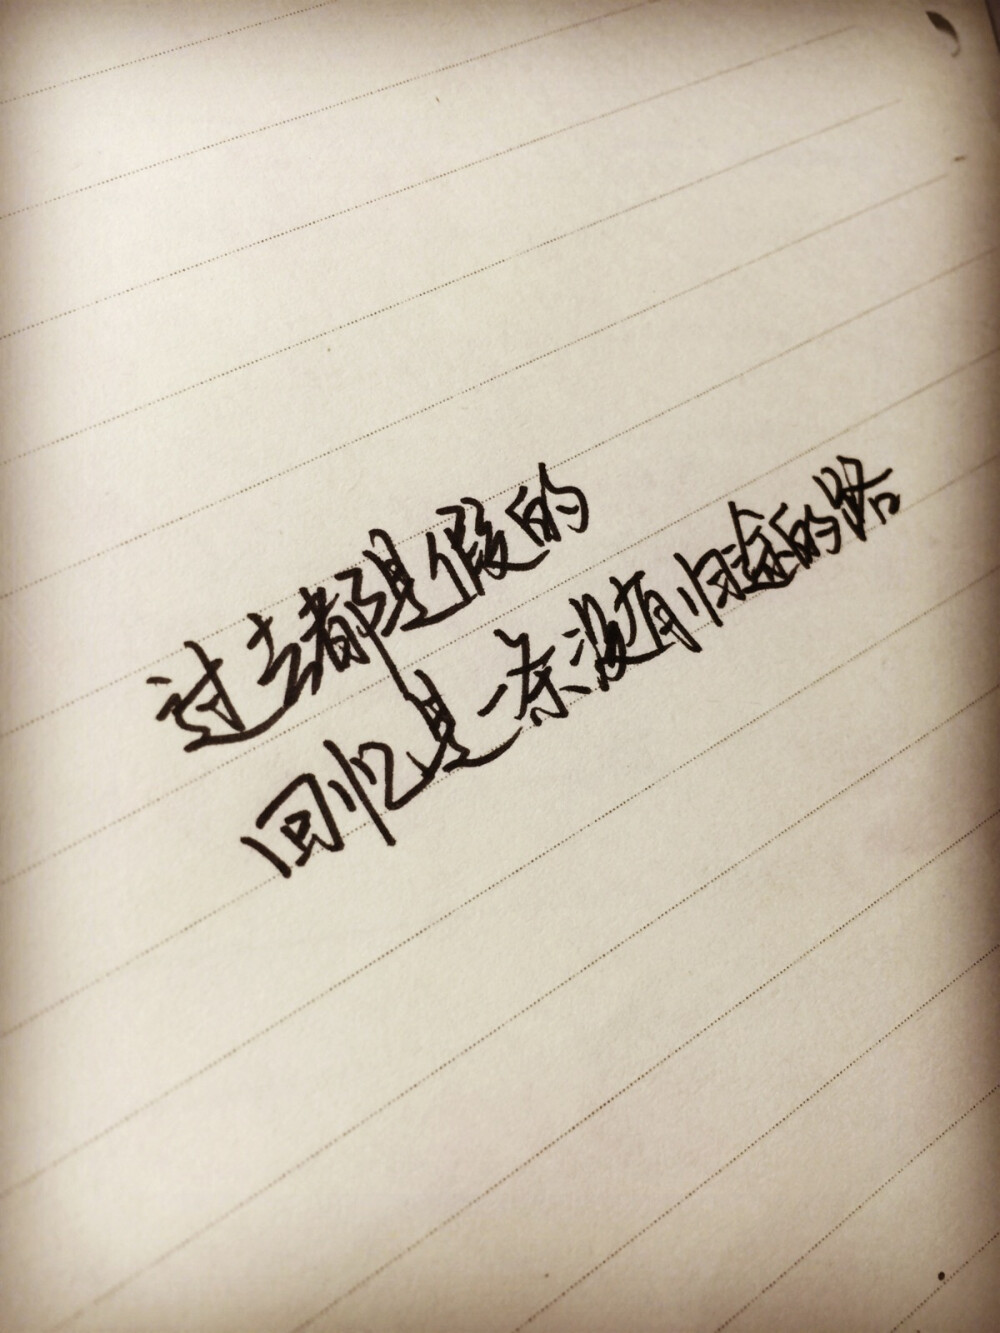 过去都是假的
回忆是一条没有归途的路